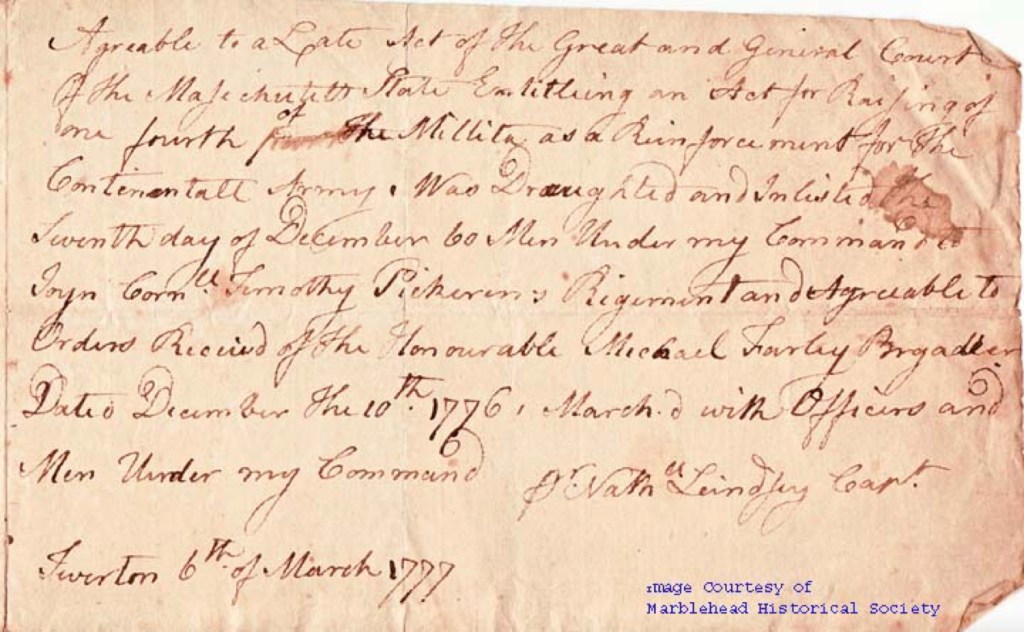 Agreable to a Late Act of the Great and General Court
of the Massechusetts State Entitleing an Act for Raising of
one fourth of the Millita as a Reinforcement for the
Contenentall Army, Was Draughted and Inlisted the
Seventh day of December 60 Men Under my Command to
Joyn Corn.ll Timothy Pickerins Rigement and Agreeable to
Orders Received of the Honourable Michael Farley Brgadeer
Dated December the 10th. 1776, March.d with Officers and
Men Under my Command
Pr. Nathll Leindsey Capt.
Tiverton 6th of March 1777
Image Courtesy of
Marblehead Historical Society